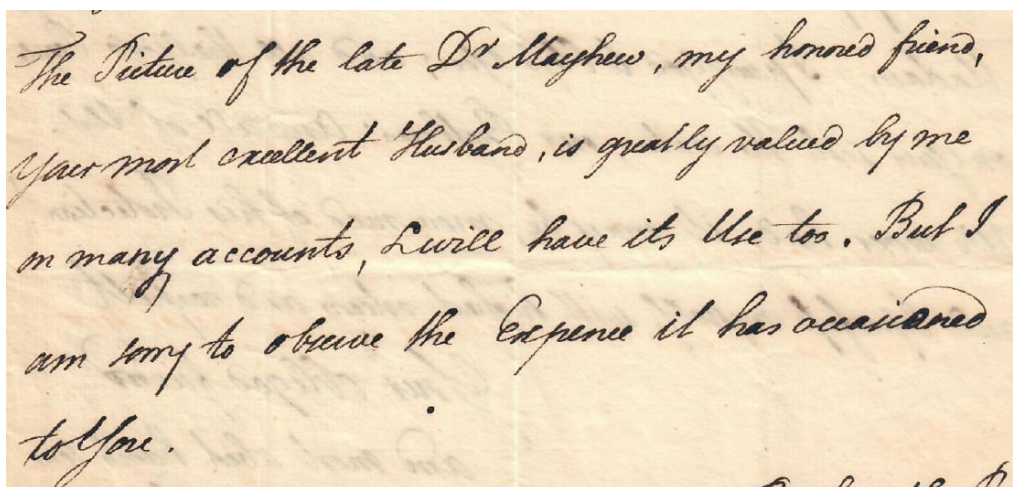 The Picture of the late Dr Mayhew, my honored friend,
Your most excellent Husband, is greatly valued by me
on many accounts, & will have its Use too. But I
am sorry to observe the Expence it has occasioned
to You.